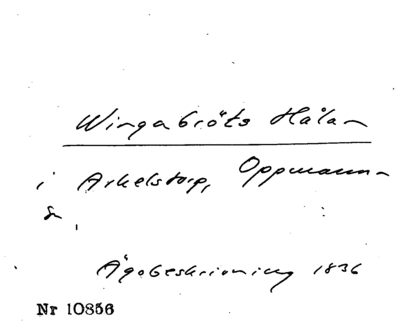 Wingabröts Hålan
i Arkelstorp, Oppmanna
Sn.
Ägobeskrivning 1836
Nr 10856